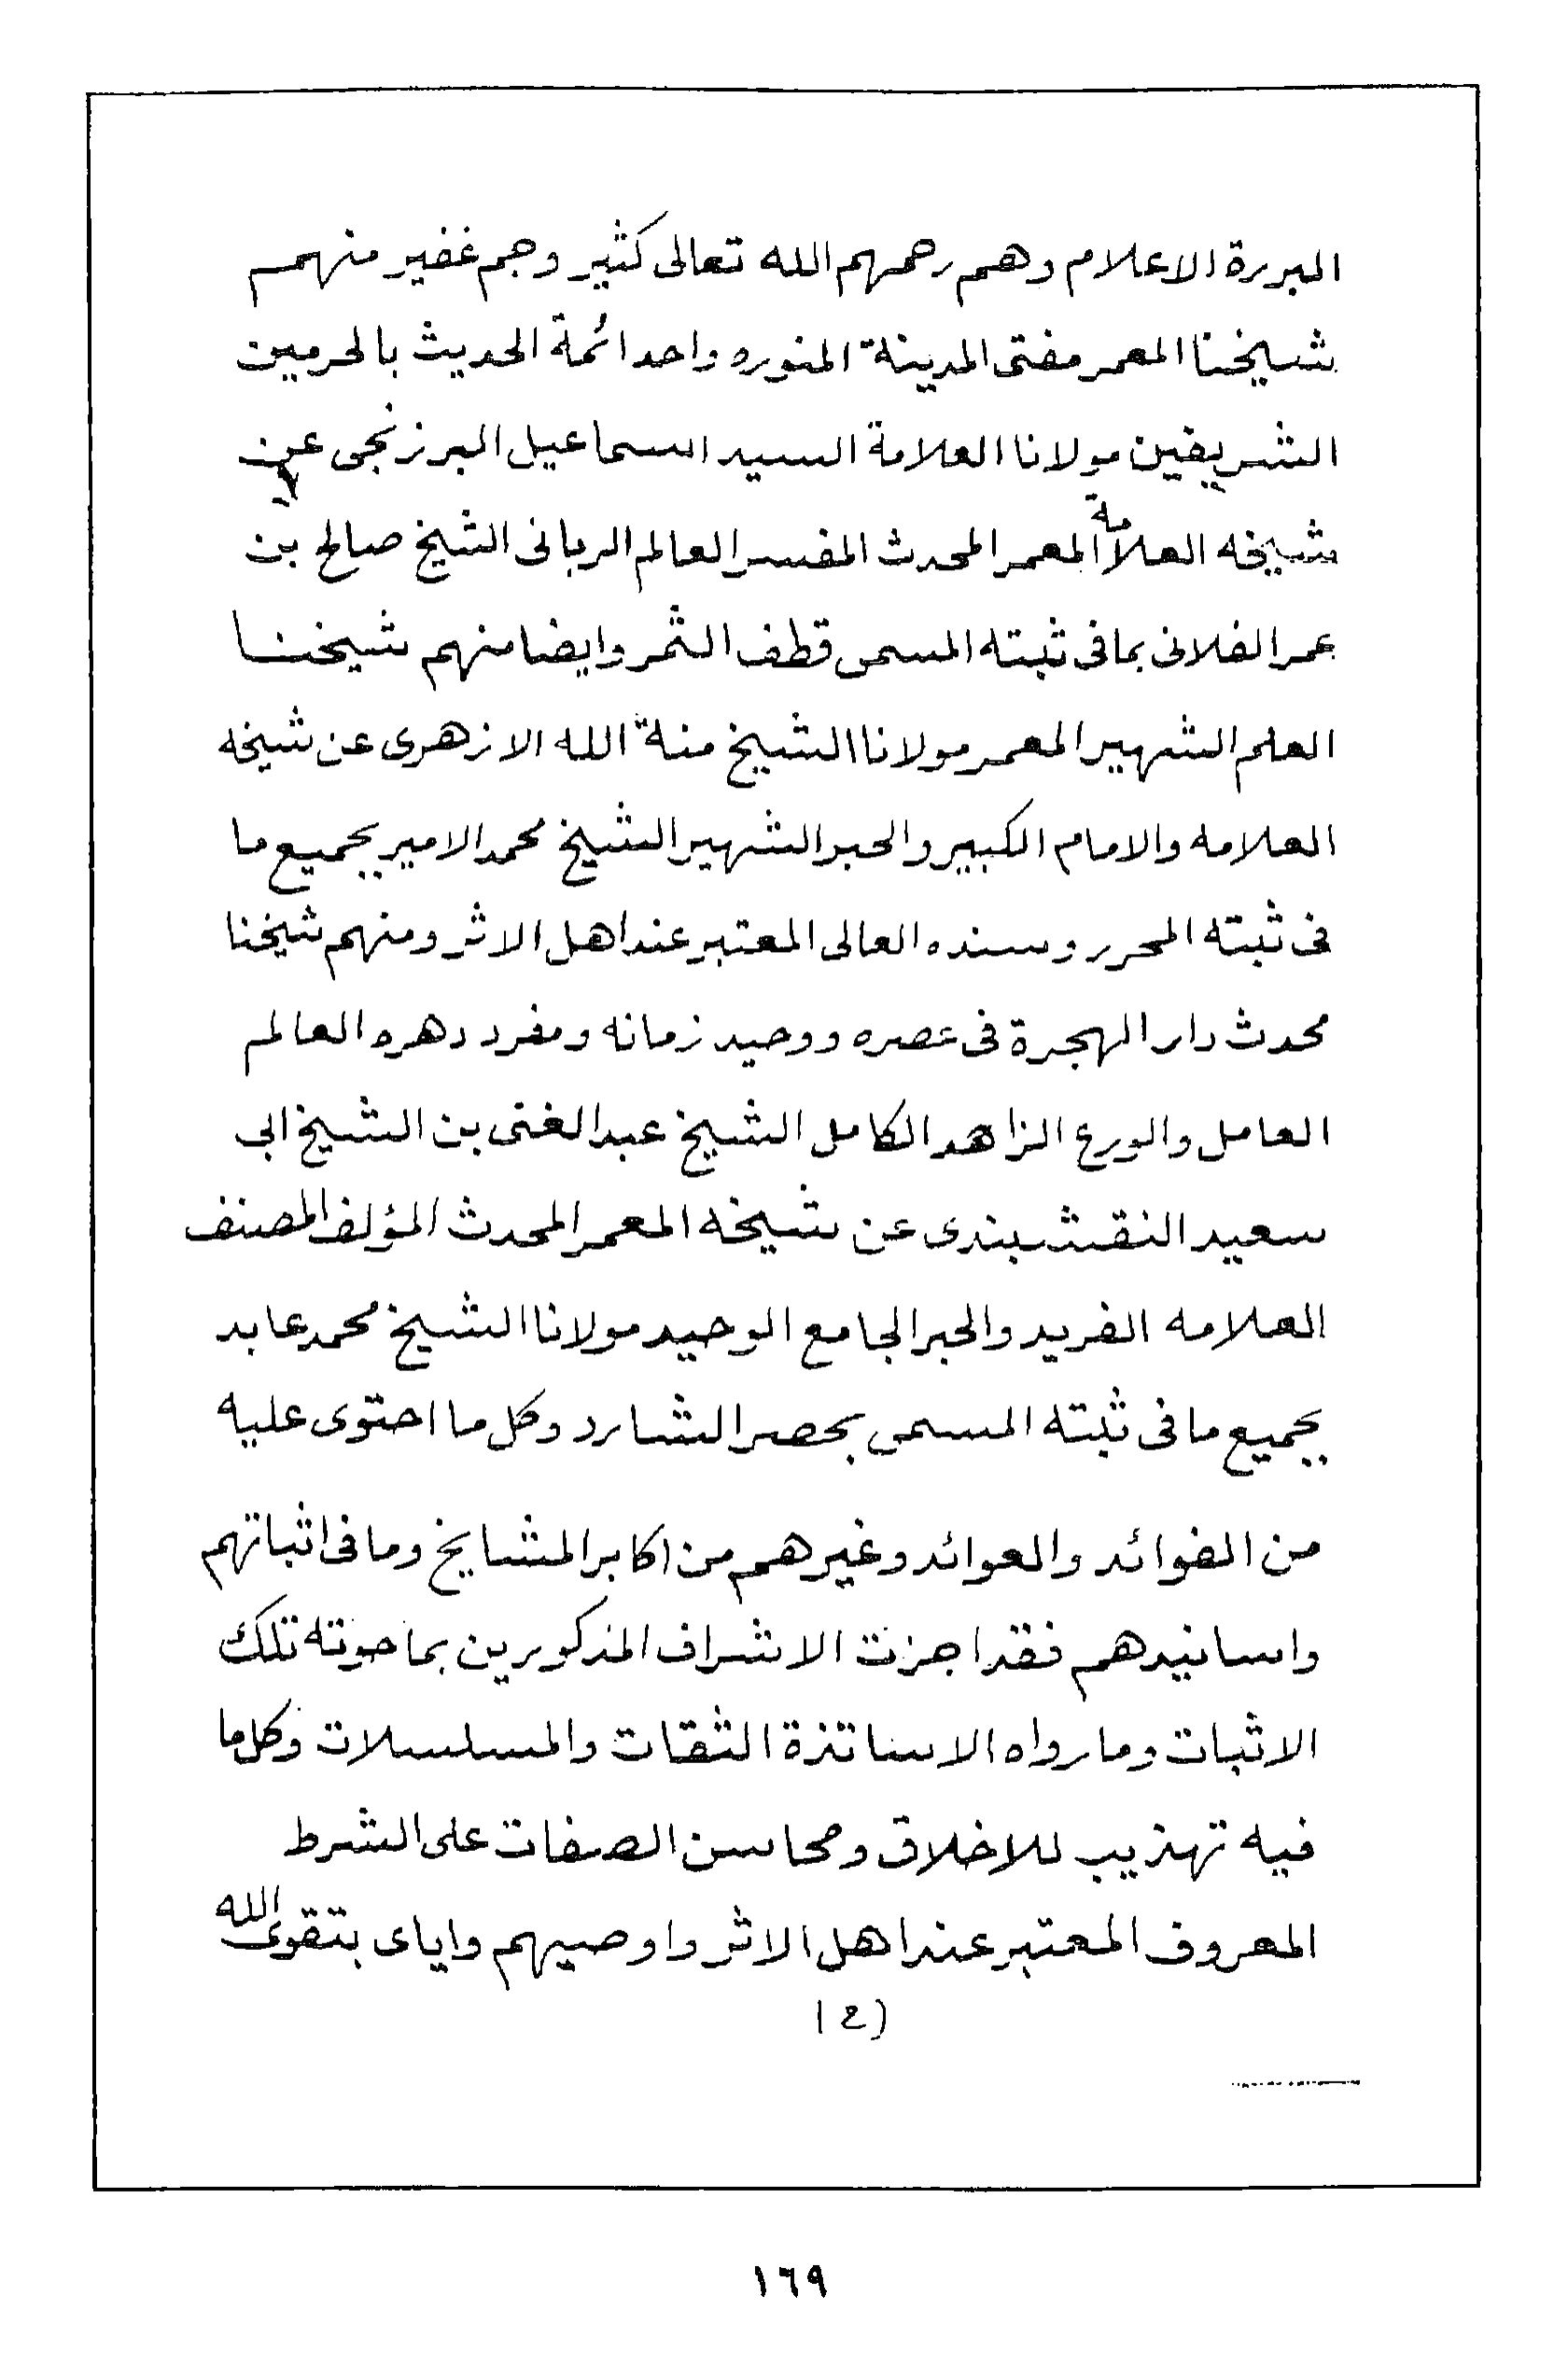 البررة الاعلام وهم رحمهم الله تعالى كثير وجم غفير منهم
شيخنا المعمر مفتى المدينة المنوره واحد ائمة الحديث بالحرمين
الشريفين مولانا العلامة السيد اسماعيل البرزنجى عن
شيخه العلامة المعمر المحدث المفسر العالم الربانى الشيخ صالح بن
عمر الفلانى بما فى ثبته المسمى قطف الثمر وايضا منهم شيخنا
العلم الشهير المعمر مولانا الشيخ منة الله الازهرى عن شيخه
العلامه والامام الكبير والحبر الشهير الشيخ محمد الامير بجميع ما
فى ثبته المحرر وسنده العالى المعتبر عند اهل الاثر ومنهم شيخنا
محدث دار الهجرة فى عصره ووحيد زمانه ومفرد دهره العالم
العامل والورع الزاهد الكامل الشيخ عبد الغنى بن الشيخ ابى
سعيد النقشبندى عن شيخه المعمر المحدث المؤلف المصنف
العلامه الفريد والحبر الجامع الوحيد مولانا الشيخ محمد عابد
بجميع ما فى ثبته المسمى بحصر الشارد وكل ما احتوى عليه
من الفوائد والعوائد وغيرهم من اكابر المشايخ وما فى اثباتهم
واسانيدهم فقد اجزت الاشراف المذكورين بما حوته تلك
الاثبات وما رواه الاساتذة الثقات والمسلسلات وكل ما
فيه تهذيب للاخلاق ومحاسن الصفات على الشرط
المعروف المعتبر عند اهل الاثر واوصيهم واياى بتقوى الله
١٦٩